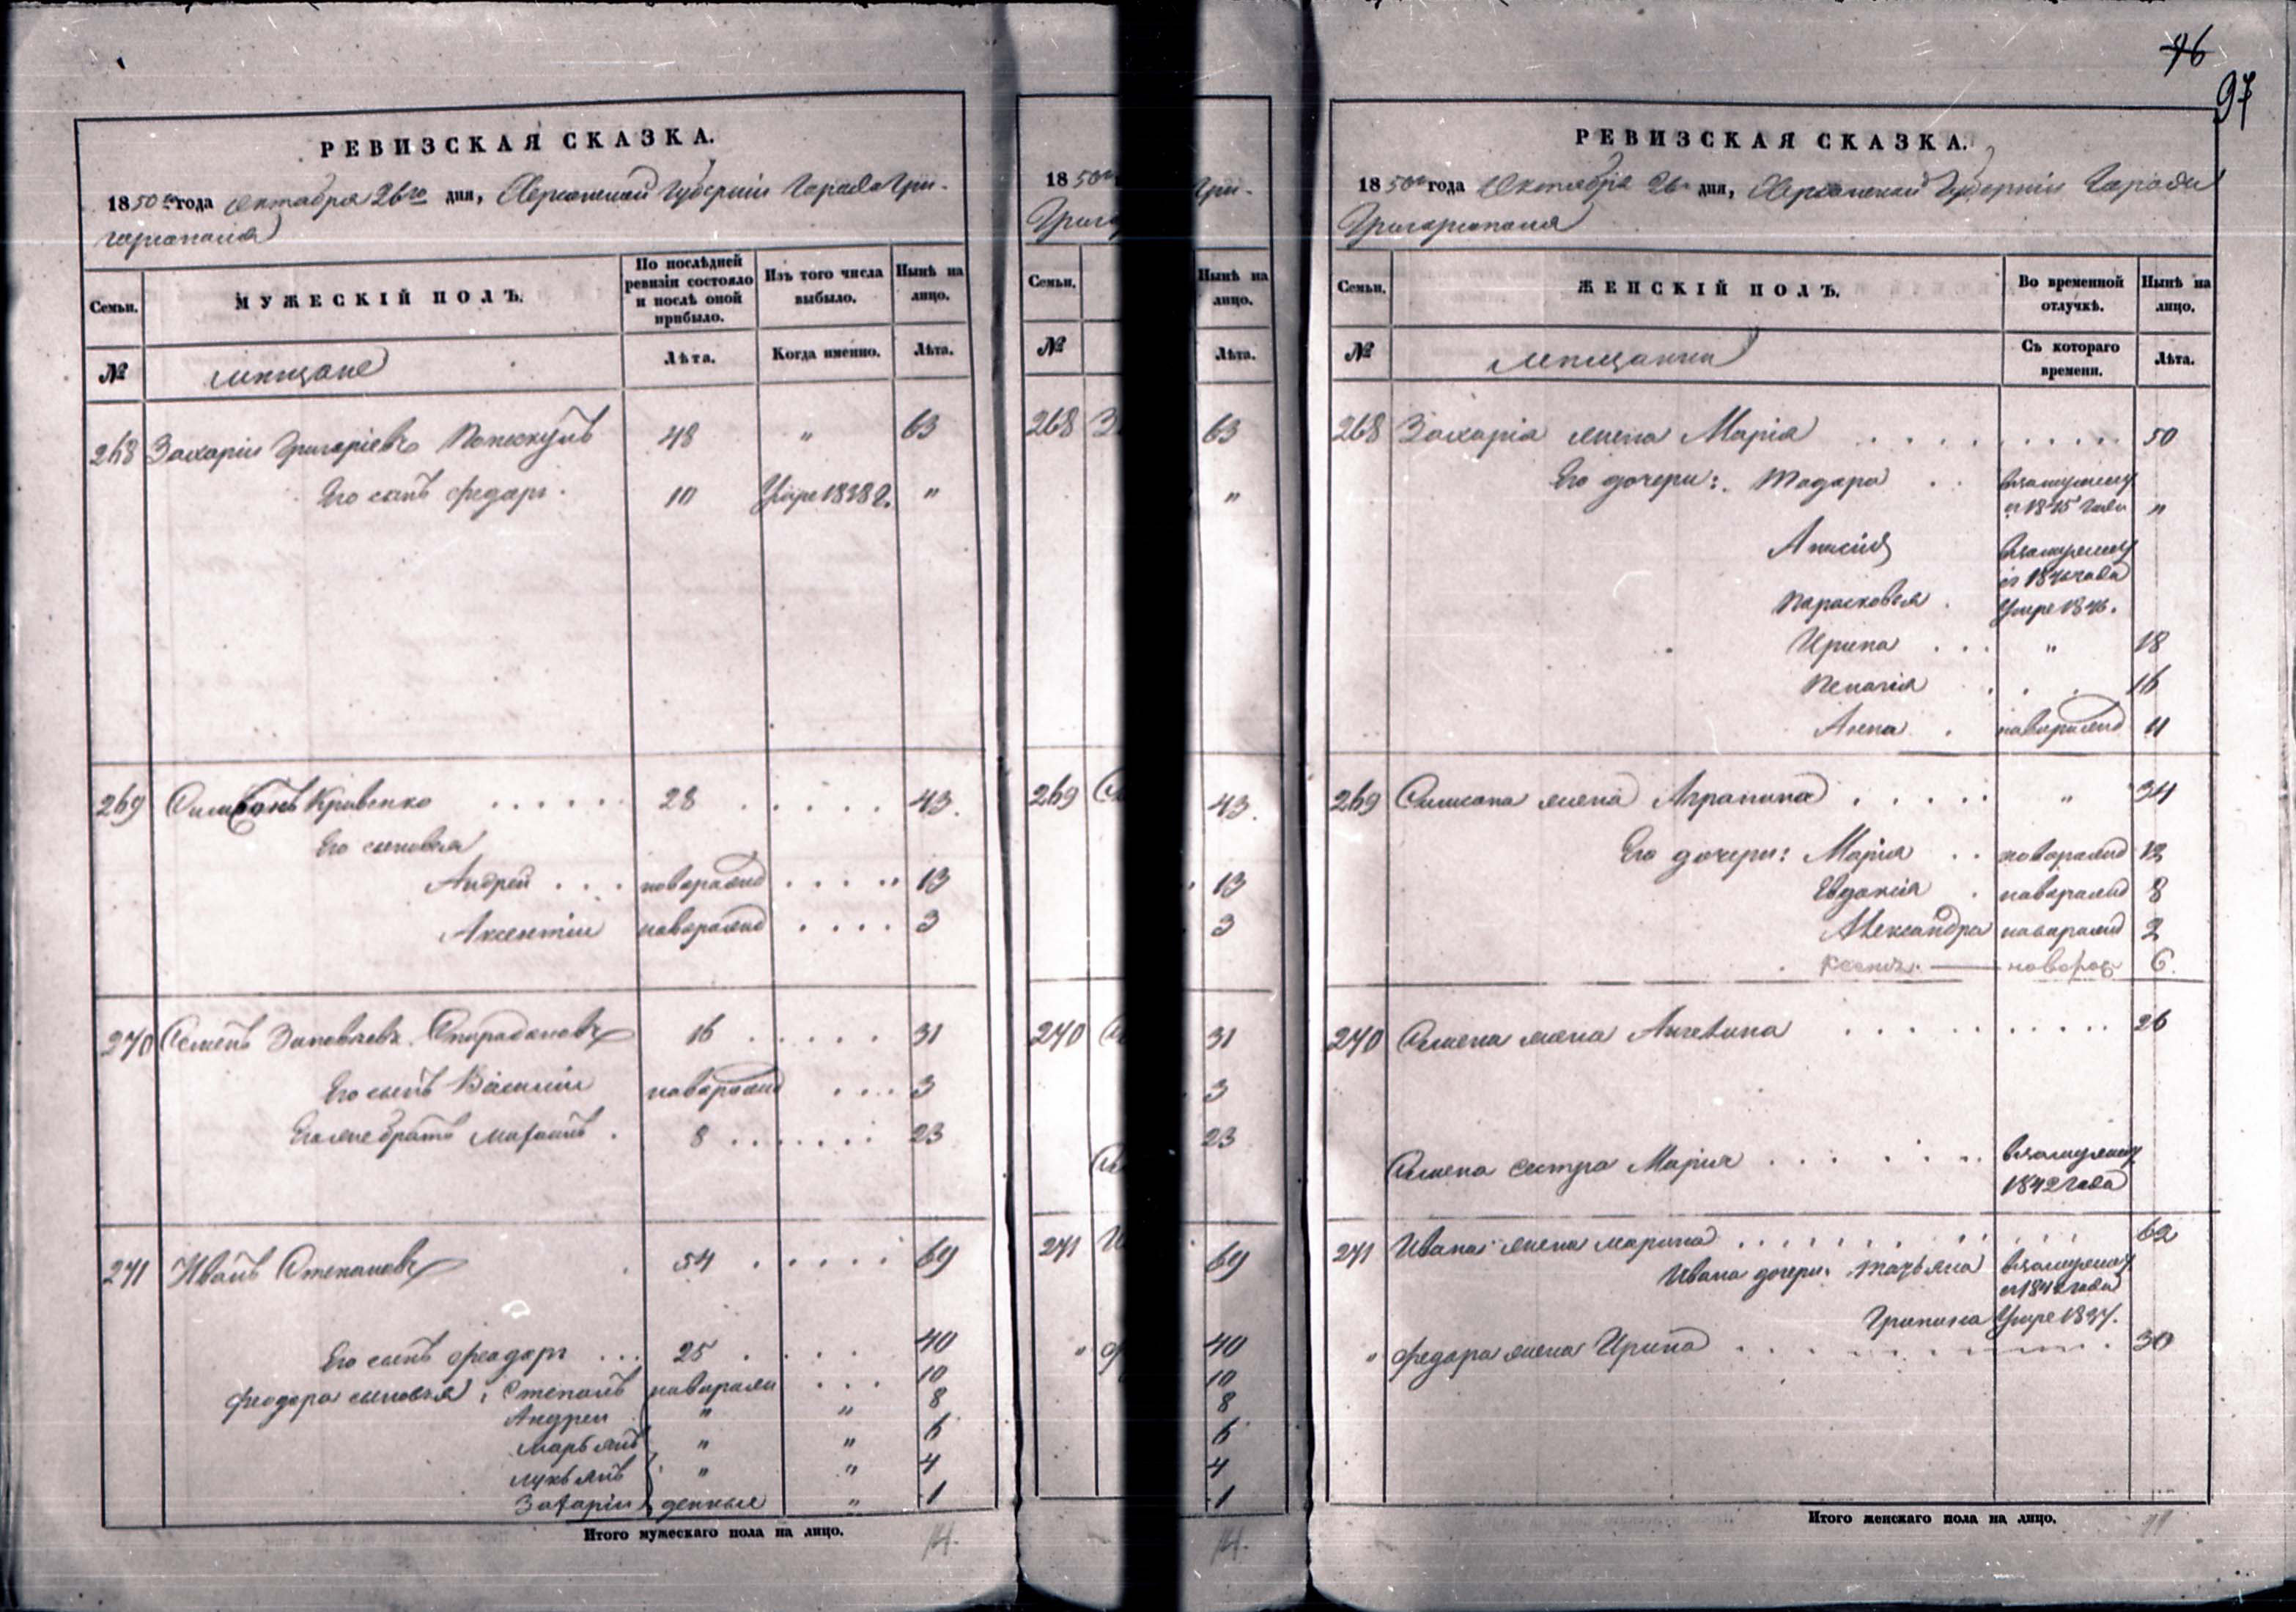 96
97
РЕВИЗСКАЯ СКАЗКА.
1850го года октября 26го дня, Херсонской Губернии Города Гри-
гориополя
Семьи.
МУЖЕСКІЙ ПОЛЪ.
По послѣдней ревизіи состояло и послѣ оной прибыло.
Изъ того числа выбыло.
Нынѣ на лицо.
№
мещане
Лѣта.
Когда именно.
Лѣта.
268 Захарии Григориевъ 48 " 63
Его сынъ Федоръ. 10 Умре 1838 г. "
269 Симеонъ Кривенко . . . . . . 28 . . . . . 43.
Его сыновья
Андрей . . . наворажд . . . . " 13
Аксентии наворажд . . . . 3
270 Семенъ 16 . . . . . 31
Его сынъ Василии наворажд . . . 3
Его же братъ 8 . . . . . . 23
271 Иванъ Степановъ 54 . . . . . 69
Его сынъ Феодоръ . . . 25 . . . . 40
Феодора сыновья: Степанъ наворажд . . . 10
Андреи " " 8
Марьянъ " " 6
Лукьянъ " " 4
Захарии денныя " 1
Итого мужескаго пола на лицо. 14.
1850го
Гри-
Григо
Семьи.
Нынѣ на лицо.
№
Лѣта.
268 З 63
"
269 Си 43.
13
3
270 С 31
3
23
Се
271 И 69
" Ф 40
10
8
6
4
1
14.
РЕВИЗСКАЯ СКАЗКА.
1850го года Октября 26го дня, Херсонской Губернии Города
Григориополя
Семьи.
ЖЕНСКІЙ ПОЛЪ.
Во временной отлучкѣ.
Нынѣ на лицо.
№
мещанки
Съ котораго времени.
Лѣта.
268 Захария жена Мария . . . . . . . . . . 50
Его дочери: Тодора . . взамужеству съ 1845 года "
Анисия взамужеству съ 184 года
Парасковья . Умре 1846.
Ирина . . . " 18
Пелагия . . . 16
Анна . наворажд 11
269 Симиона жена Агрипина . . . . . " 34
Его дочери: Мария . . наворажд 12
Евдокия . наворажд 8
Александра наворажд 2
Ксения. — новорож 6.
270 Семена жена Ангелина . . . . . . . . . . 26
Семена сестра Мария . . . . . . взамужеству 1842 года
271 Ивана жена Марина . . . . . . . . . . . 62
Ивана дочери: Татьяна взамужеству съ 1842 года
Грипина Умре 1837.
" Федора жена Ирина . . . . . . . . . . 30
Итого женскаго пола на лицо. 11